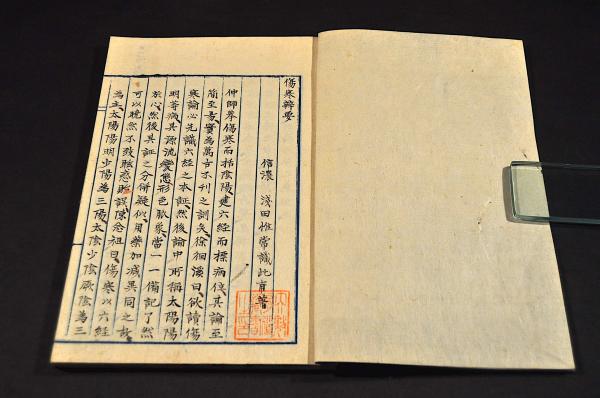 傷寒辨要
信濃 淺田惟常識此甫著
仲師荟傷寒而括陰陽建六經而標病位其論至
簡至實為萬古不刊之訓矣徐洄溪曰欲讀傷
寒論必先識六經之本証然後論中所稱太陽陽
明等病其源流變態形色脈象當一一備記了然
於心然後其証之分併疑似用藥加減異同之故
可以曉然不致眩惑貽誤陳念祖曰傷寒以六經
為主太陽陽明少陽為三陽太陰少陰厥陰為三